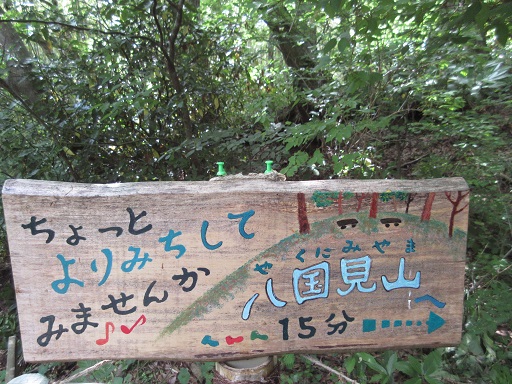 ちょっと
よりみちして
みませんか
やくにみやま
八国見山へ
15分